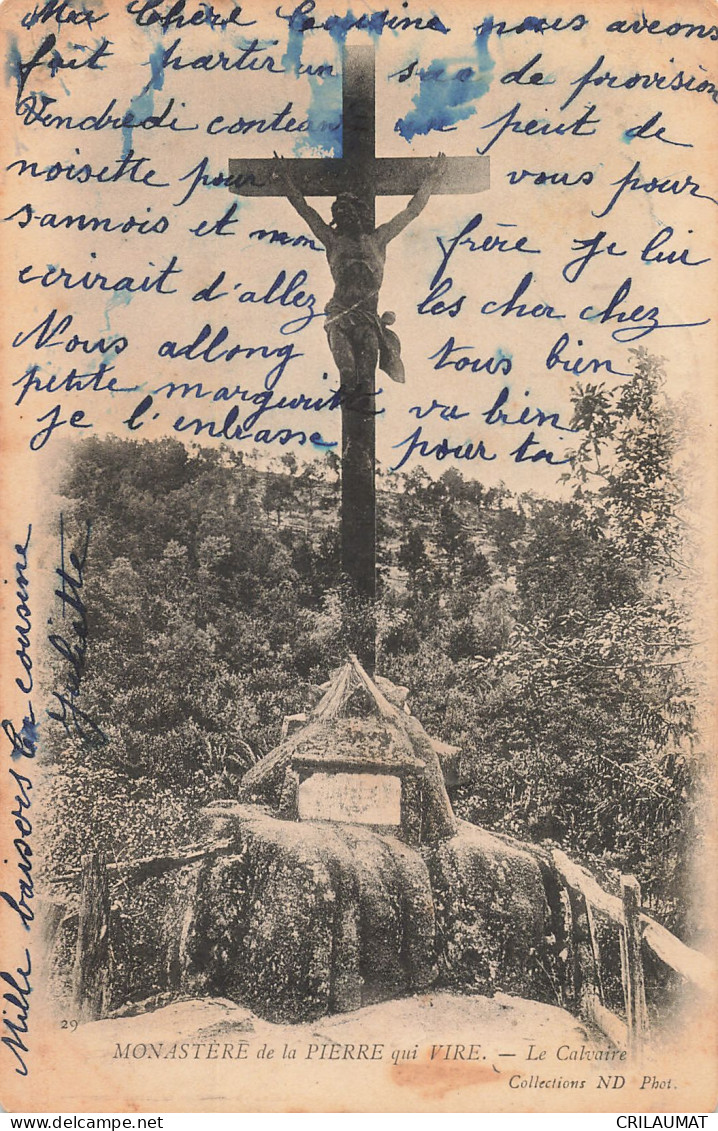 Ma chère Cousine nous avons
fait partir un sac de provision
Vendredi contenant un petit de
noisette pour vous pour
sannois et mon frère je lui
ecrirait d'allez les cher chez
Nous allong tous bien
petite marguerite va bien
je l'enbrasse pour toi
Mille baisers ta cousine
Juliette
29
MONASTÈRE de la PIERRE qui VIRE. — Le Calvaire
Collections ND Phot.
CRILAUMAT